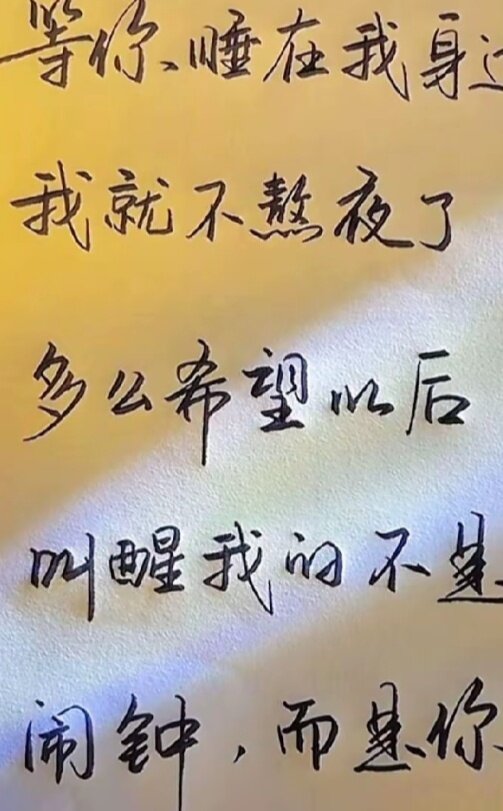 等你睡在我身边
我就不熬夜了
多么希望以后
叫醒我的不是
闹钟，而是你